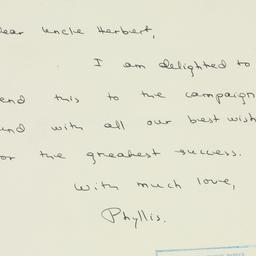 ear Uncle Herbert,
I am delighted to
end this to the campaign
und with all our best wish
or the greatest success.
With much love,
Phyllis.